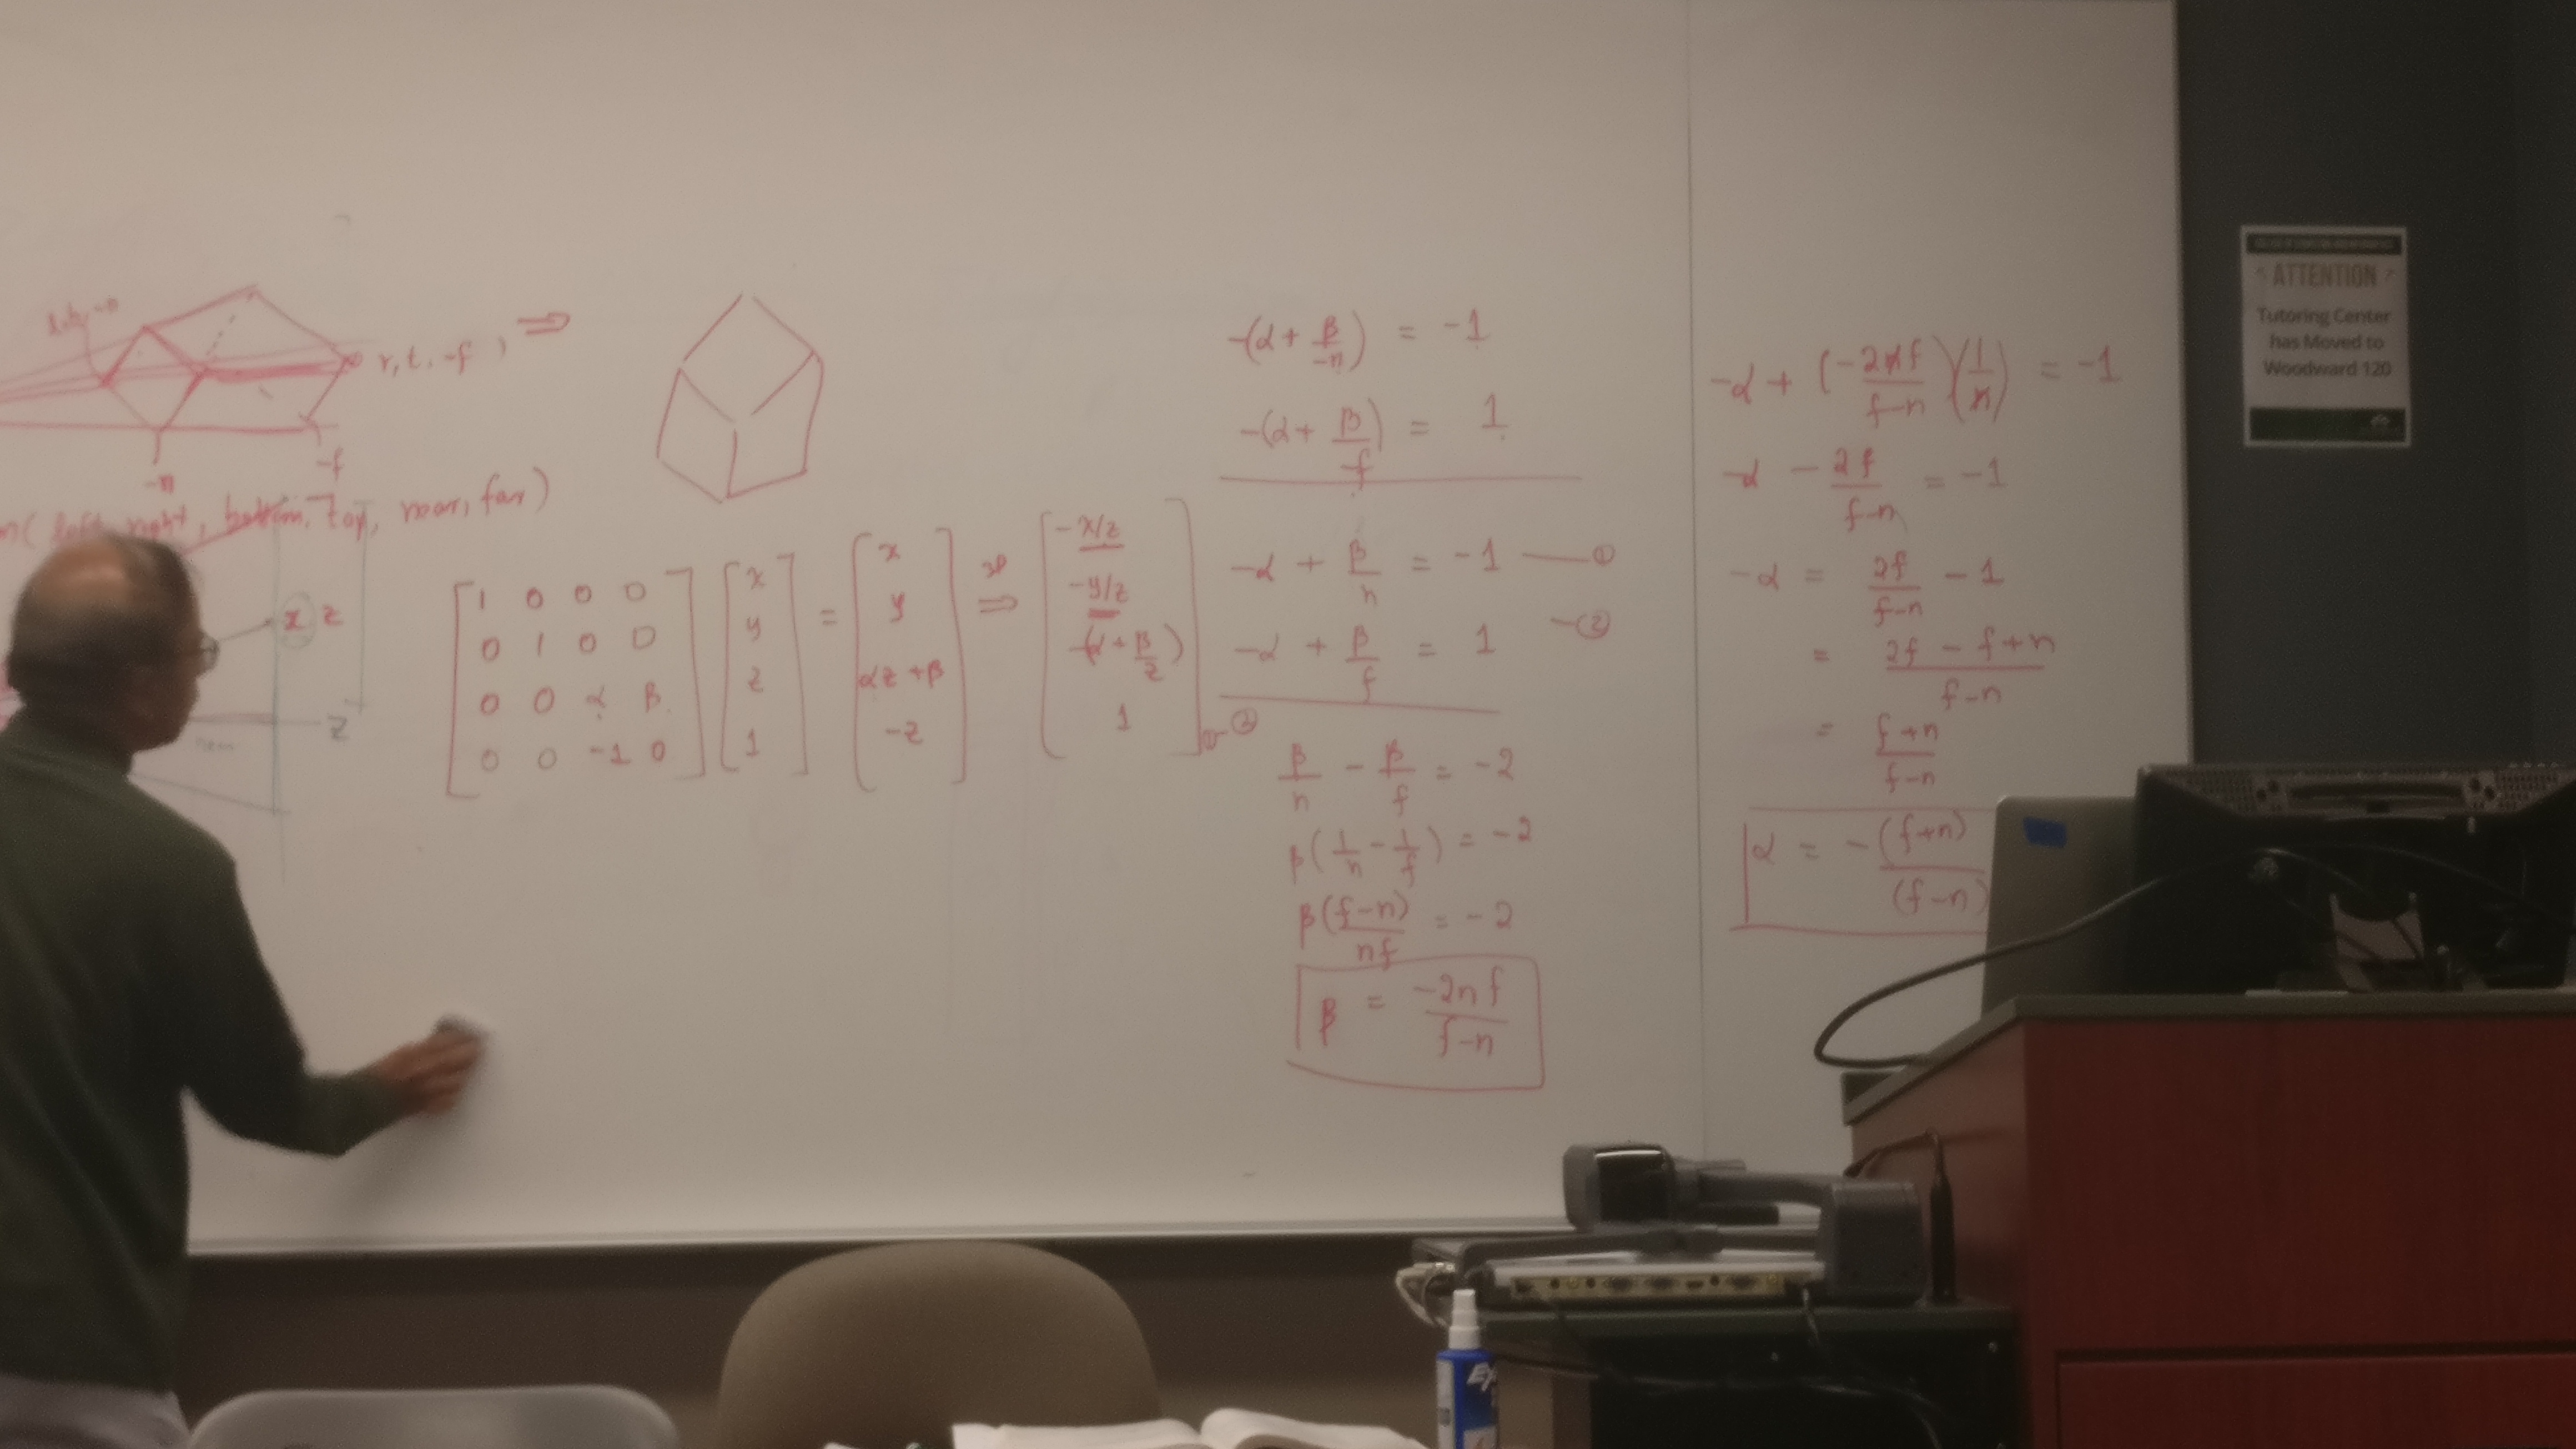 r, t, -f, ⇒
-n
-f
right, bottom, top, near, far)
x z
z
[1 0 0 0] [x] = [x] ⇒ [-x/z]
[0 1 0 0] [y] [y] [-y/z]
[0 0 α β] [z] [αz+β] [-(α+β/z)]
[0 0 -1 0] [1] [-z] [1]
-(α + β/-n) = -1
-(α + β/-f) = 1
-α + β/n = -1 — ①
-α + β/f = 1 — ②
①-②
β/n - β/f = -2
β(1/n - 1/f) = -2
β(f-n)/nf = -2
β = -2nf/f-n
-α + (-2nf/f-n)(1/n) = -1
-α - 2f/f-n = -1
-α = 2f/f-n - 1
= 2f - f + n/f-n
= f+n/f-n
α = -(f+n)/(f-n)
ATTENTION
Tutoring Center
has Moved to
Woodward 120